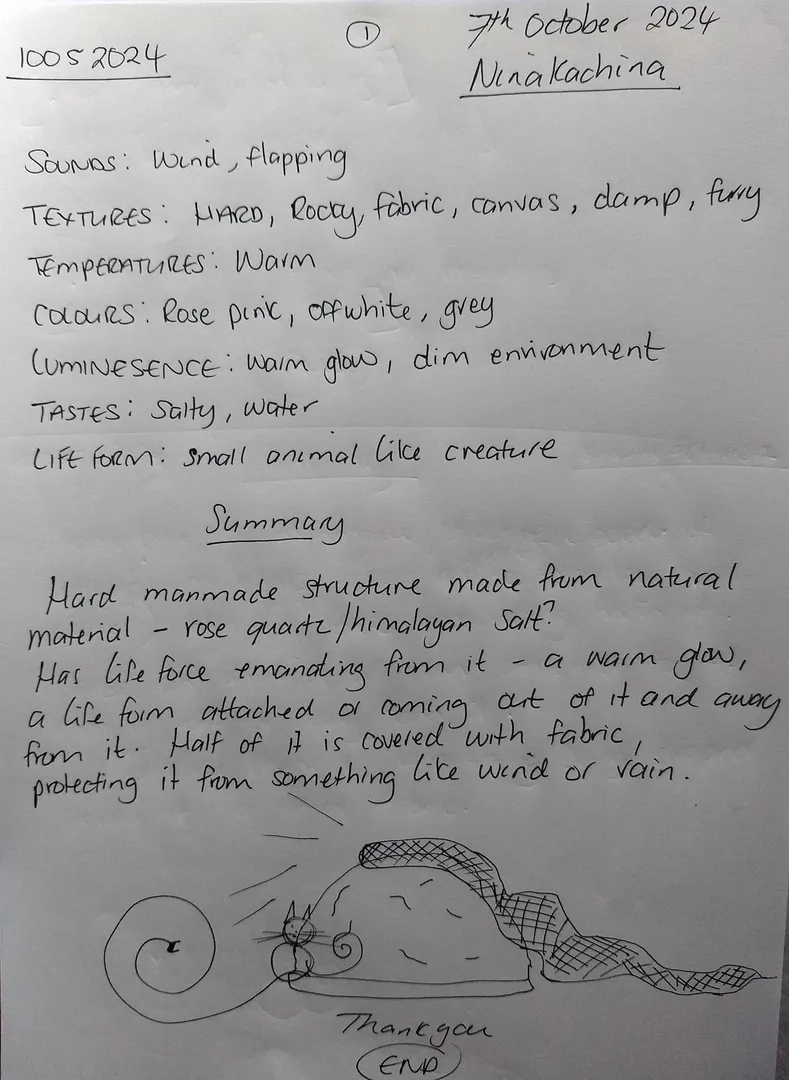 1
7th October 2024
10052024
Ninakachina
SOUNDS: Wind, flapping
TEXTURES: HARD, Rocky, fabric, canvas, damp, furry
TEMPERATURES: Warm
COLOURS: Rose pink, offwhite, grey
LUMINESENCE: Warm glow, dim environment
TASTES: Salty, water
LIFE FORM: small animal like creature
Summary
Hard manmade structure made from natural
material - rose quartz/himalayan salt?
Has life force emanating from it - a warm glow,
a life form attached or coming out of it and away
from it. Half of it is covered with fabric,
protecting it from something like wind or rain.
Thankyou
END